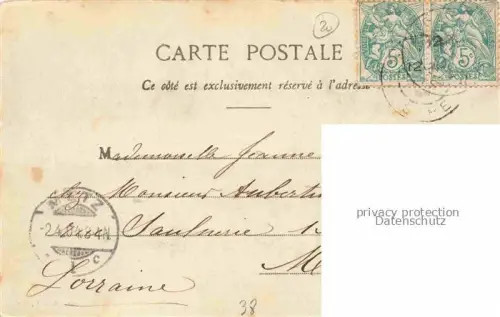 CARTE POSTALE
Ce côté est exclusivement réservé à l'adresse
Mademoiselle Jeanne
chez Monsieur Aubertin
Saulnerie
M
Lorraine
38
5
5
METZ
c
privacy protection
Datenschutz